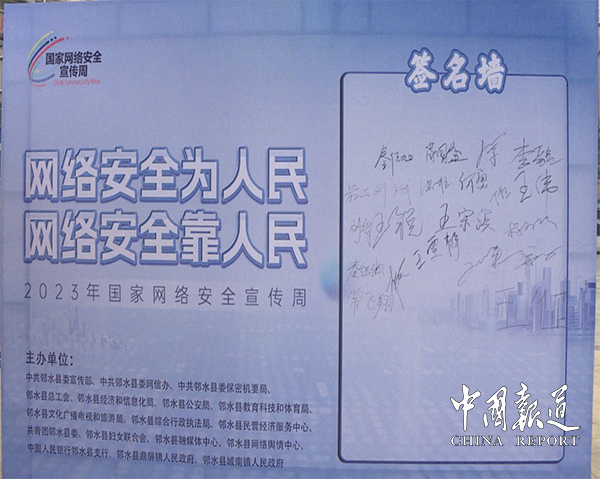 国家网络安全
宣传周
China Cybersecurity Week
签名墙
网络安全为人民
网络安全靠人民
2023年国家网络安全宣传周
主办单位：
中共邻水县委宣传部、中共邻水县委网信办、中共邻水县委保密机要局、
邻水县总工会、邻水县经济和信息化局、邻水县公安局、邻水县教育科技和体育局、
邻水县文化广播电视和旅游局、邻水县综合行政执法局、邻水县民营经济服务中心、
共青团邻水县委、邻水县妇女联合会、邻水县融媒体中心、邻水县网络舆情中心、
中国人民银行邻水县支行、邻水县鼎屏镇人民政府、邻水县城南镇人民政府
王伟
王宗滨
常飞翔
中國報道
CHINA REPORT